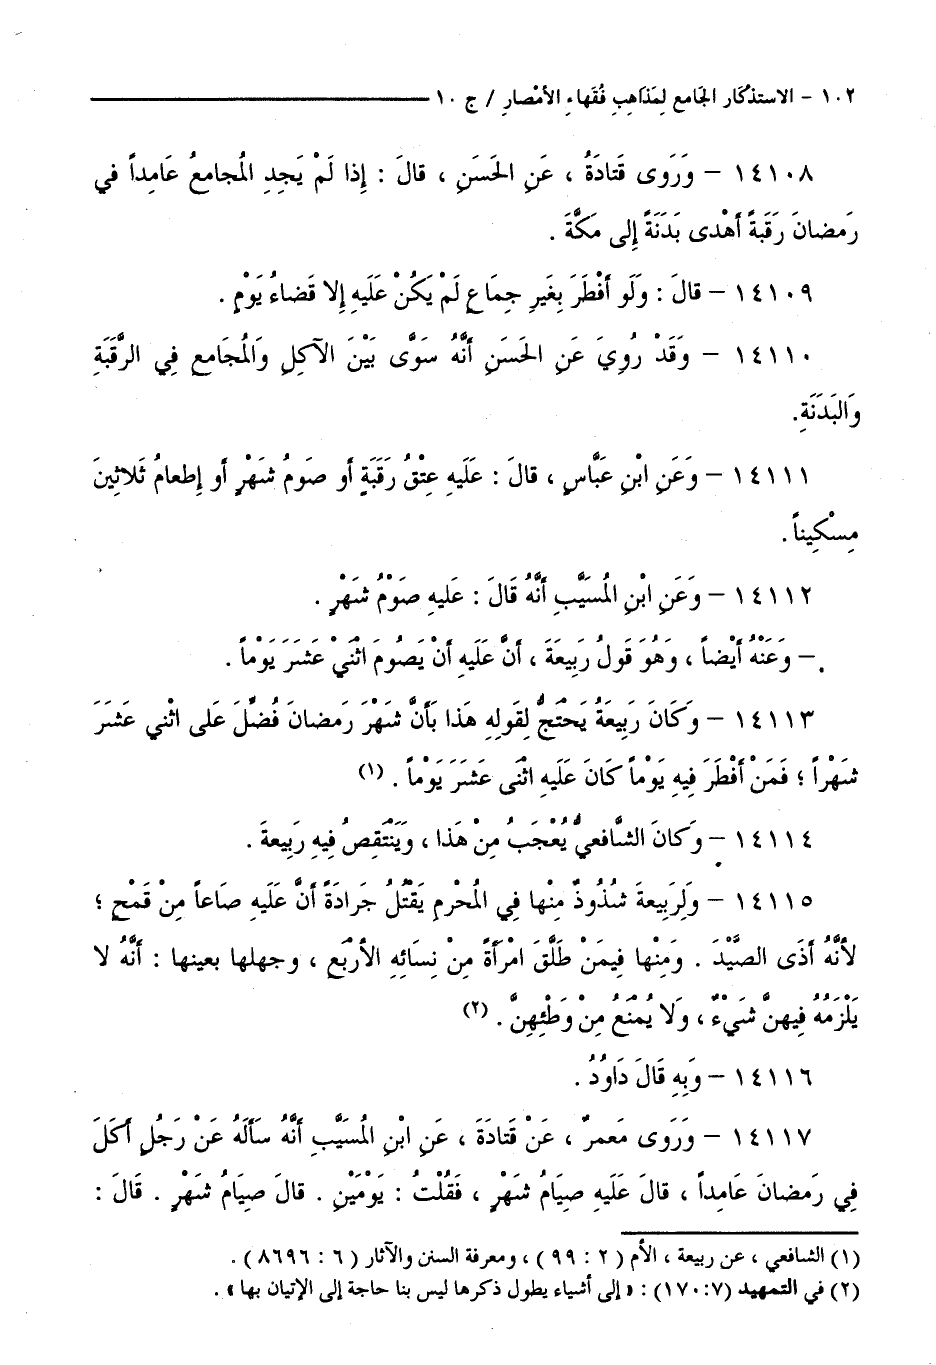 ١٠٢ - الاستذْكَار الجَامع لِمَذَاهِبِ فُقَهاءِ الأمْصارِ / ج ١٠
١٤١٠٨ - وَرَوى قَتادَةُ ، عَنِ الحَسَنِ ، قالَ : إِذا لَمْ يَجِدِ المُجامعُ عَامِداً في
رَمضانَ رَقَبَةً أَهْدى بَدَنَةً إِلى مَكَّةَ .
١٤١٠٩ - قالَ : وَلَو أَفْطَرَ بِغَيرِ جِمَاعٍ لَمْ يَكُنْ عَلَيهِ إِلا قَضاءُ يَوْمٍ .
١٤١١٠ - وَقَدْ رُوِيَ عَنِ الحَسَنِ أَنَّهُ سَوَّى بَيْنَ الآكِلِ وَالمُجَامعِ فِي الرَّقَبَةِ
وَالبَدَنَةِ.
١٤١١١ - وَعَنِ ابْنِ عَبَّاسٍ ، قالَ : عَلَيهِ عِتْقُ رَقَبَةٍ أو صَومُ شَهْرٍ أو إِطعامُ ثَلاثِينَ
مِسْكِيناً .
١٤١١٢ - وَعَنِ ابْنِ المُسَيَّبِ أَنَّهُ قَالَ : عَليهِ صَوْمُ شَهْرٍ .
- وَعَنْهُ أَيْضاً ، وَهُوَ قَولُ رَبِيعَةَ ، أَنَّ عَلَيهِ أَنْ يَصُومَ اثْنَيْ عَشَرَ يَوْماً .
١٤١١٣ - وَكَانَ رَبِيعَةُ يَحْتَجُّ لِقَولِهِ هَذا بَأَنَّ شَهْرَ رَمضانَ فُضِّلَ عَلى اثْني عَشَرَ
شَهْراً ؛ فَمَنْ أَفْطَرَ فِيهِ يَوْماً كَانَ عَلَيهِ اثْنَى عَشَرَ يَوْماً . (١)
١٤١١٤ - وَكانَ الشَّافعيُّ يُعْجَبُ مِنْ هَذا ، وَيَنْتَقِصُ فِيهِ رَبِيعةَ .
١٤١١٥ - وَلِرَبِيعةَ شُذُوذٌ مِنْها فِي المُحْرِمِ يَقْتُلُ جَرادَةً أَنَّ عَلَيهِ صَاعاً مِنْ قَمْحٍ ؛
لأنَّهُ أَذَى الصَّيْدَ . وَمَنْها فِيمَنْ طَلَّقَ امْرأَةً مِنْ نِسَائِهِ الأَرْبَعِ ، وجهلها بعينها : أَنَّهُ لا
يَلْزَمُهُ فِيهنَّ شَيْءٌ ، وَلا يُمْنَعُ مِنْ وَطْئِهِنَّ . (٢)
١٤١١٦ - وَبِهِ قَالَ دَاوُدُ .
١٤١١٧ - وَرَوى مَعمرٌ ، عَنْ قَتادَةَ ، عَنِ ابْنِ المُسَيَّبِ أَنَّهُ سَأَلَهُ عَنْ رَجُلٍ أَكَلَ
فِي رَمضانَ عَامِداً ، قالَ عَلَيهِ صِيَامُ شَهْرٍ ، فَقُلْتُ : يَوْمَيْنِ . قالَ صِيَامُ شَهْرٍ . قَالَ :
(١) الشافعي ، عن ربيعة ، الأم ( ٢ : ٩٩ ) ، ومعرفة السنن والآثار ( ٦ : ٨٦٩٦ ) .
(٢) في التمهيد (٧: ١٧٠) : « إلى أشياء يطول ذكرها ليس بنا حاجة إلى الإتيان بها » .